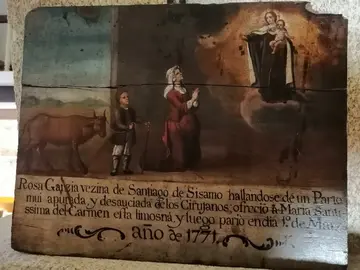 Rosa Garzia vezina de Santiago de Sisamo hallandose de un Parto
mui apurada, y desauciada de los Cirujanos, ofrecio à Maria Santi
ssima del Carmen esta limosna y luego pario en dia 1º. de Marz
año de 1771